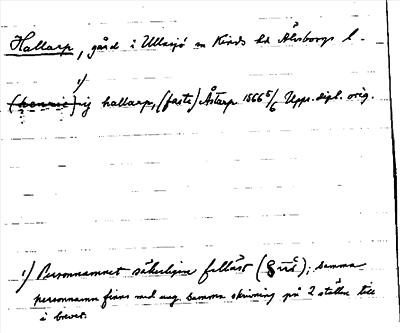 Hallarp, gård i Ullasjö sn Kinds hd Älvsborgs l.
1)
(hennic) ij hallarp, (fasta) Åstarp 1566 5/6 Upps. dipl. orig.
1) Personnamnet säkerligen felläst ( ); samma
personnamn finns med ung. samma skrivning på 2 ställen till
i brevet.